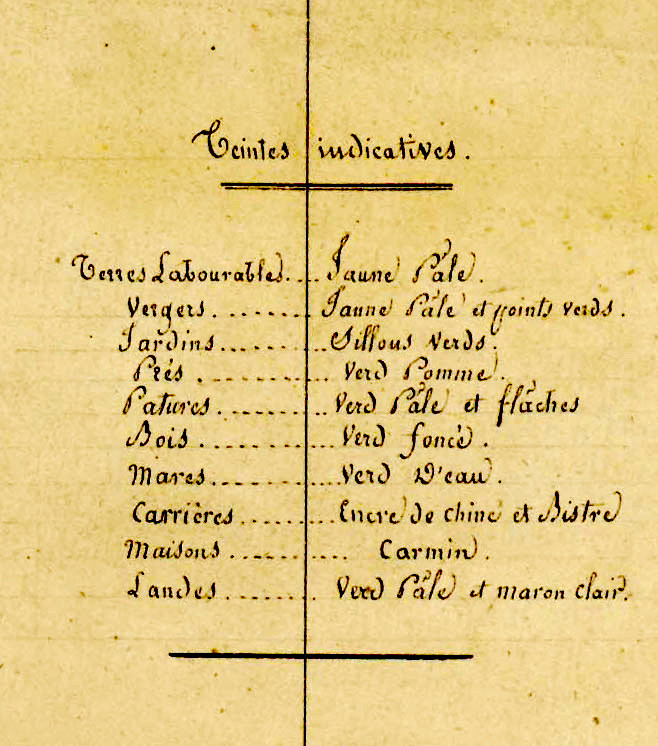 Teintes indicatives.
Terres Labourables.... Jaune Pâle.
Vergers......... Jaune Pâle et points verds.
Jardins......... Sillous verds.
Prés............ Verd Pomme.
Patures......... Verd Pâle et flaches
Bois............ Verd foncé.
Mares........... Verd D'eau.
Carrières......... Encre de chine et Bistre
Maisons......... Carmin.
Landes......... Verd Pâle et maron clair.